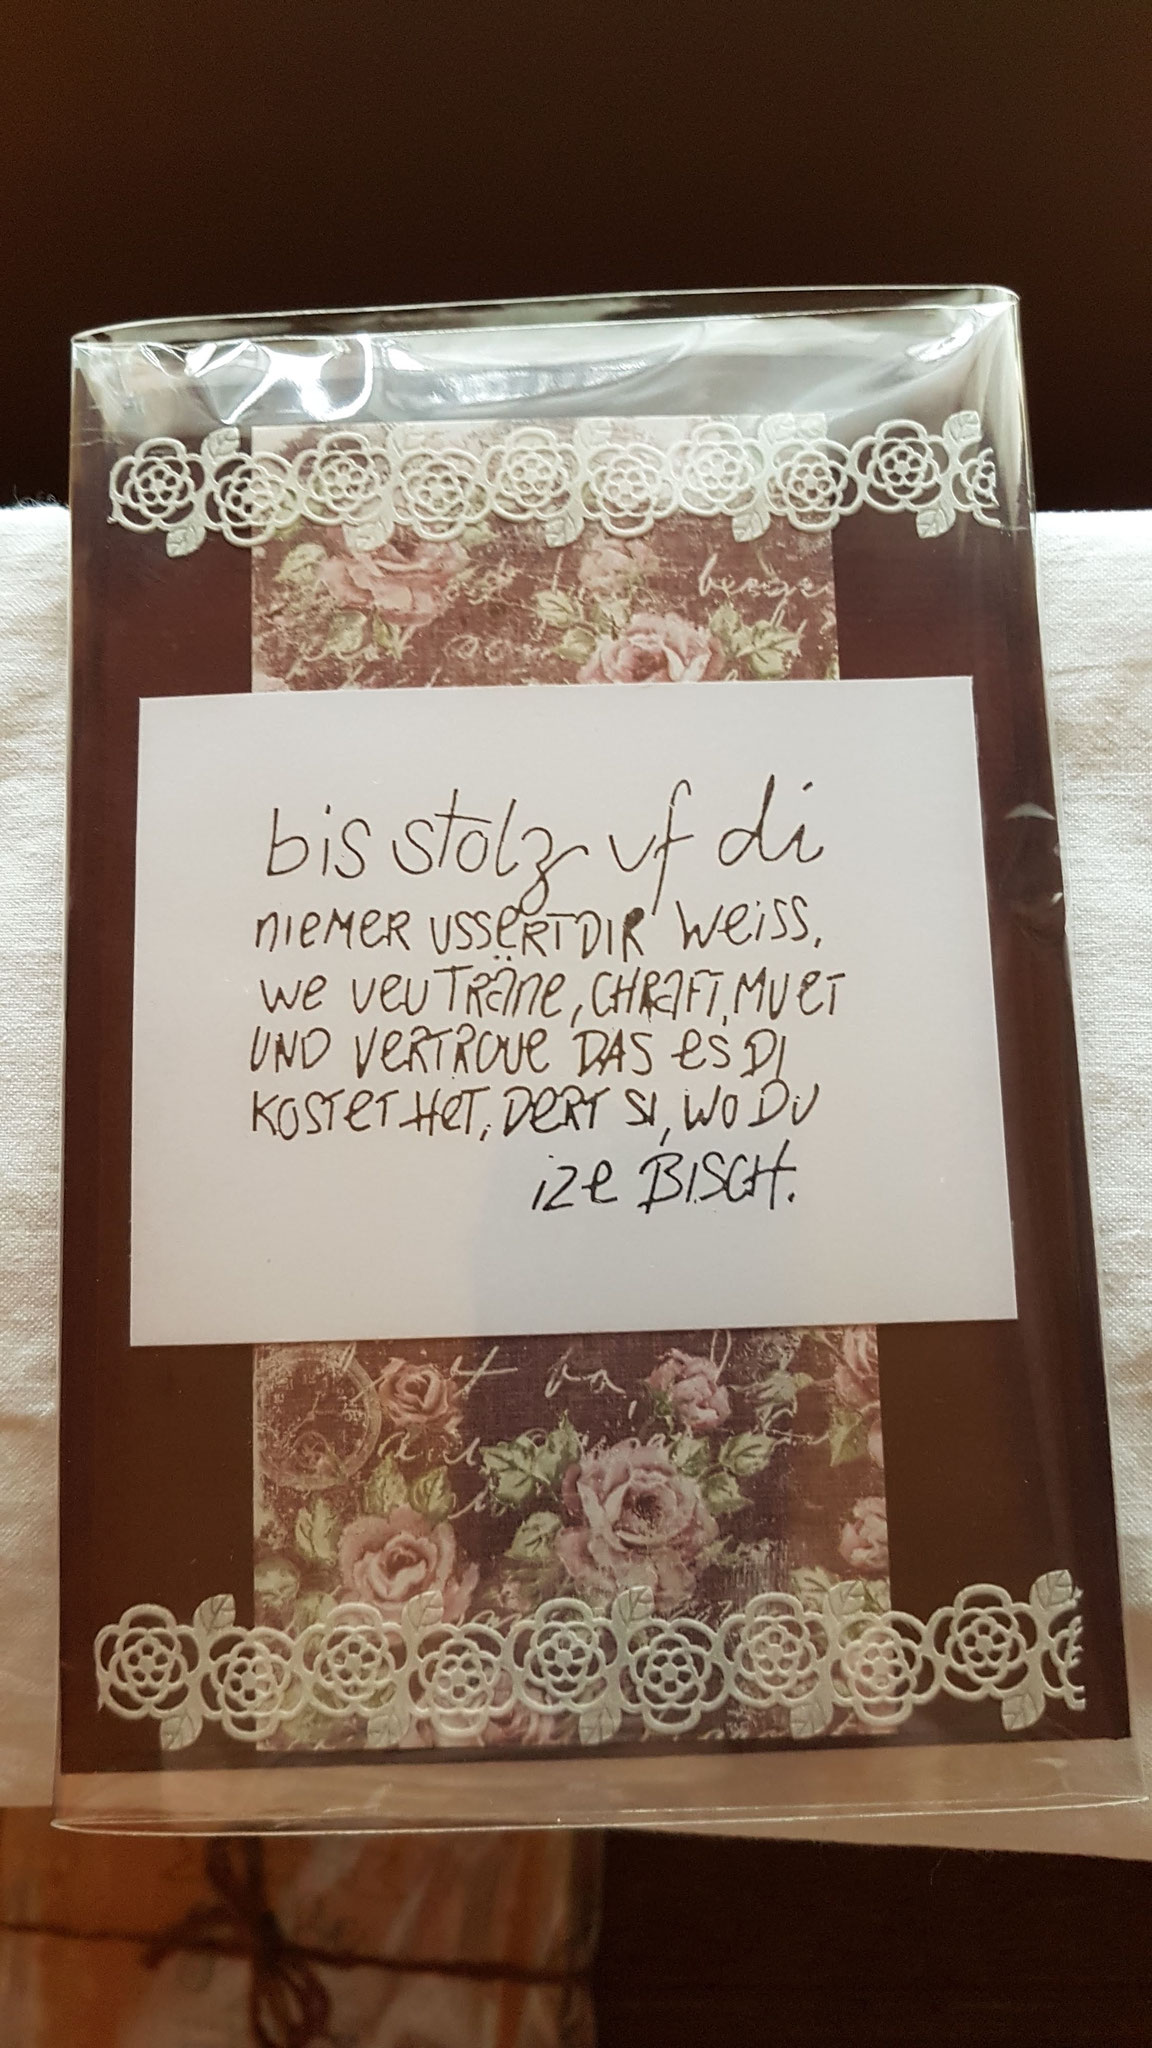 bis stolz uf di
NIEMER USSERT DIR WEISS,
WE VEU TRÄNE, CHRAFT, MUET
UND VERTROUE DAS ES DI
KOSTET HET, DERT SI, WO DU
IZE BISCH.